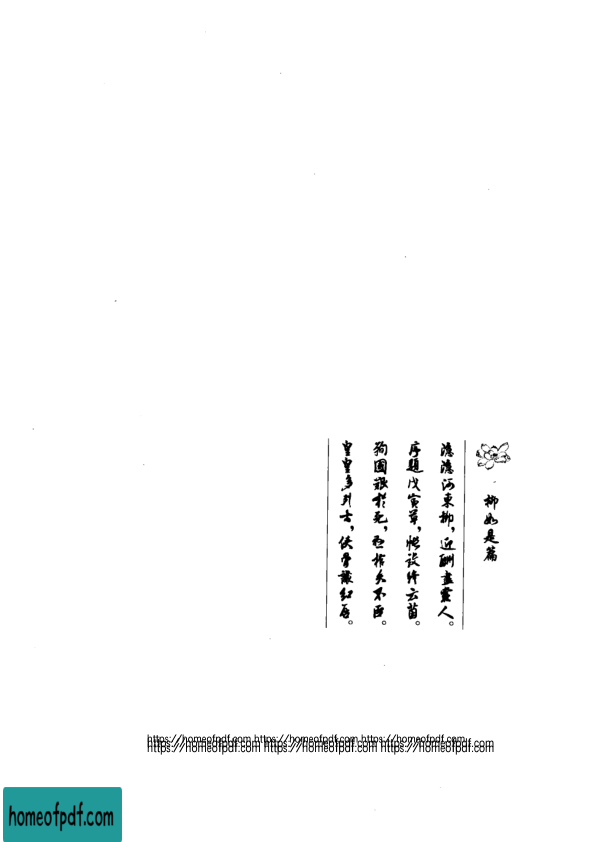 柳如是篇
河東柳，酬盡人。
序題戊寅草，帳設絳云茵。
殉國艱於死，懸棺矢不臣。
皇皇多列士，俠骨讓紅唇。
https://homeofpdf.com https://homeofpdf.com https://homeofpdf.com
https://homeofpdf.com https://homeofpdf.com https://homeofpdf.com
homeofpdf.com